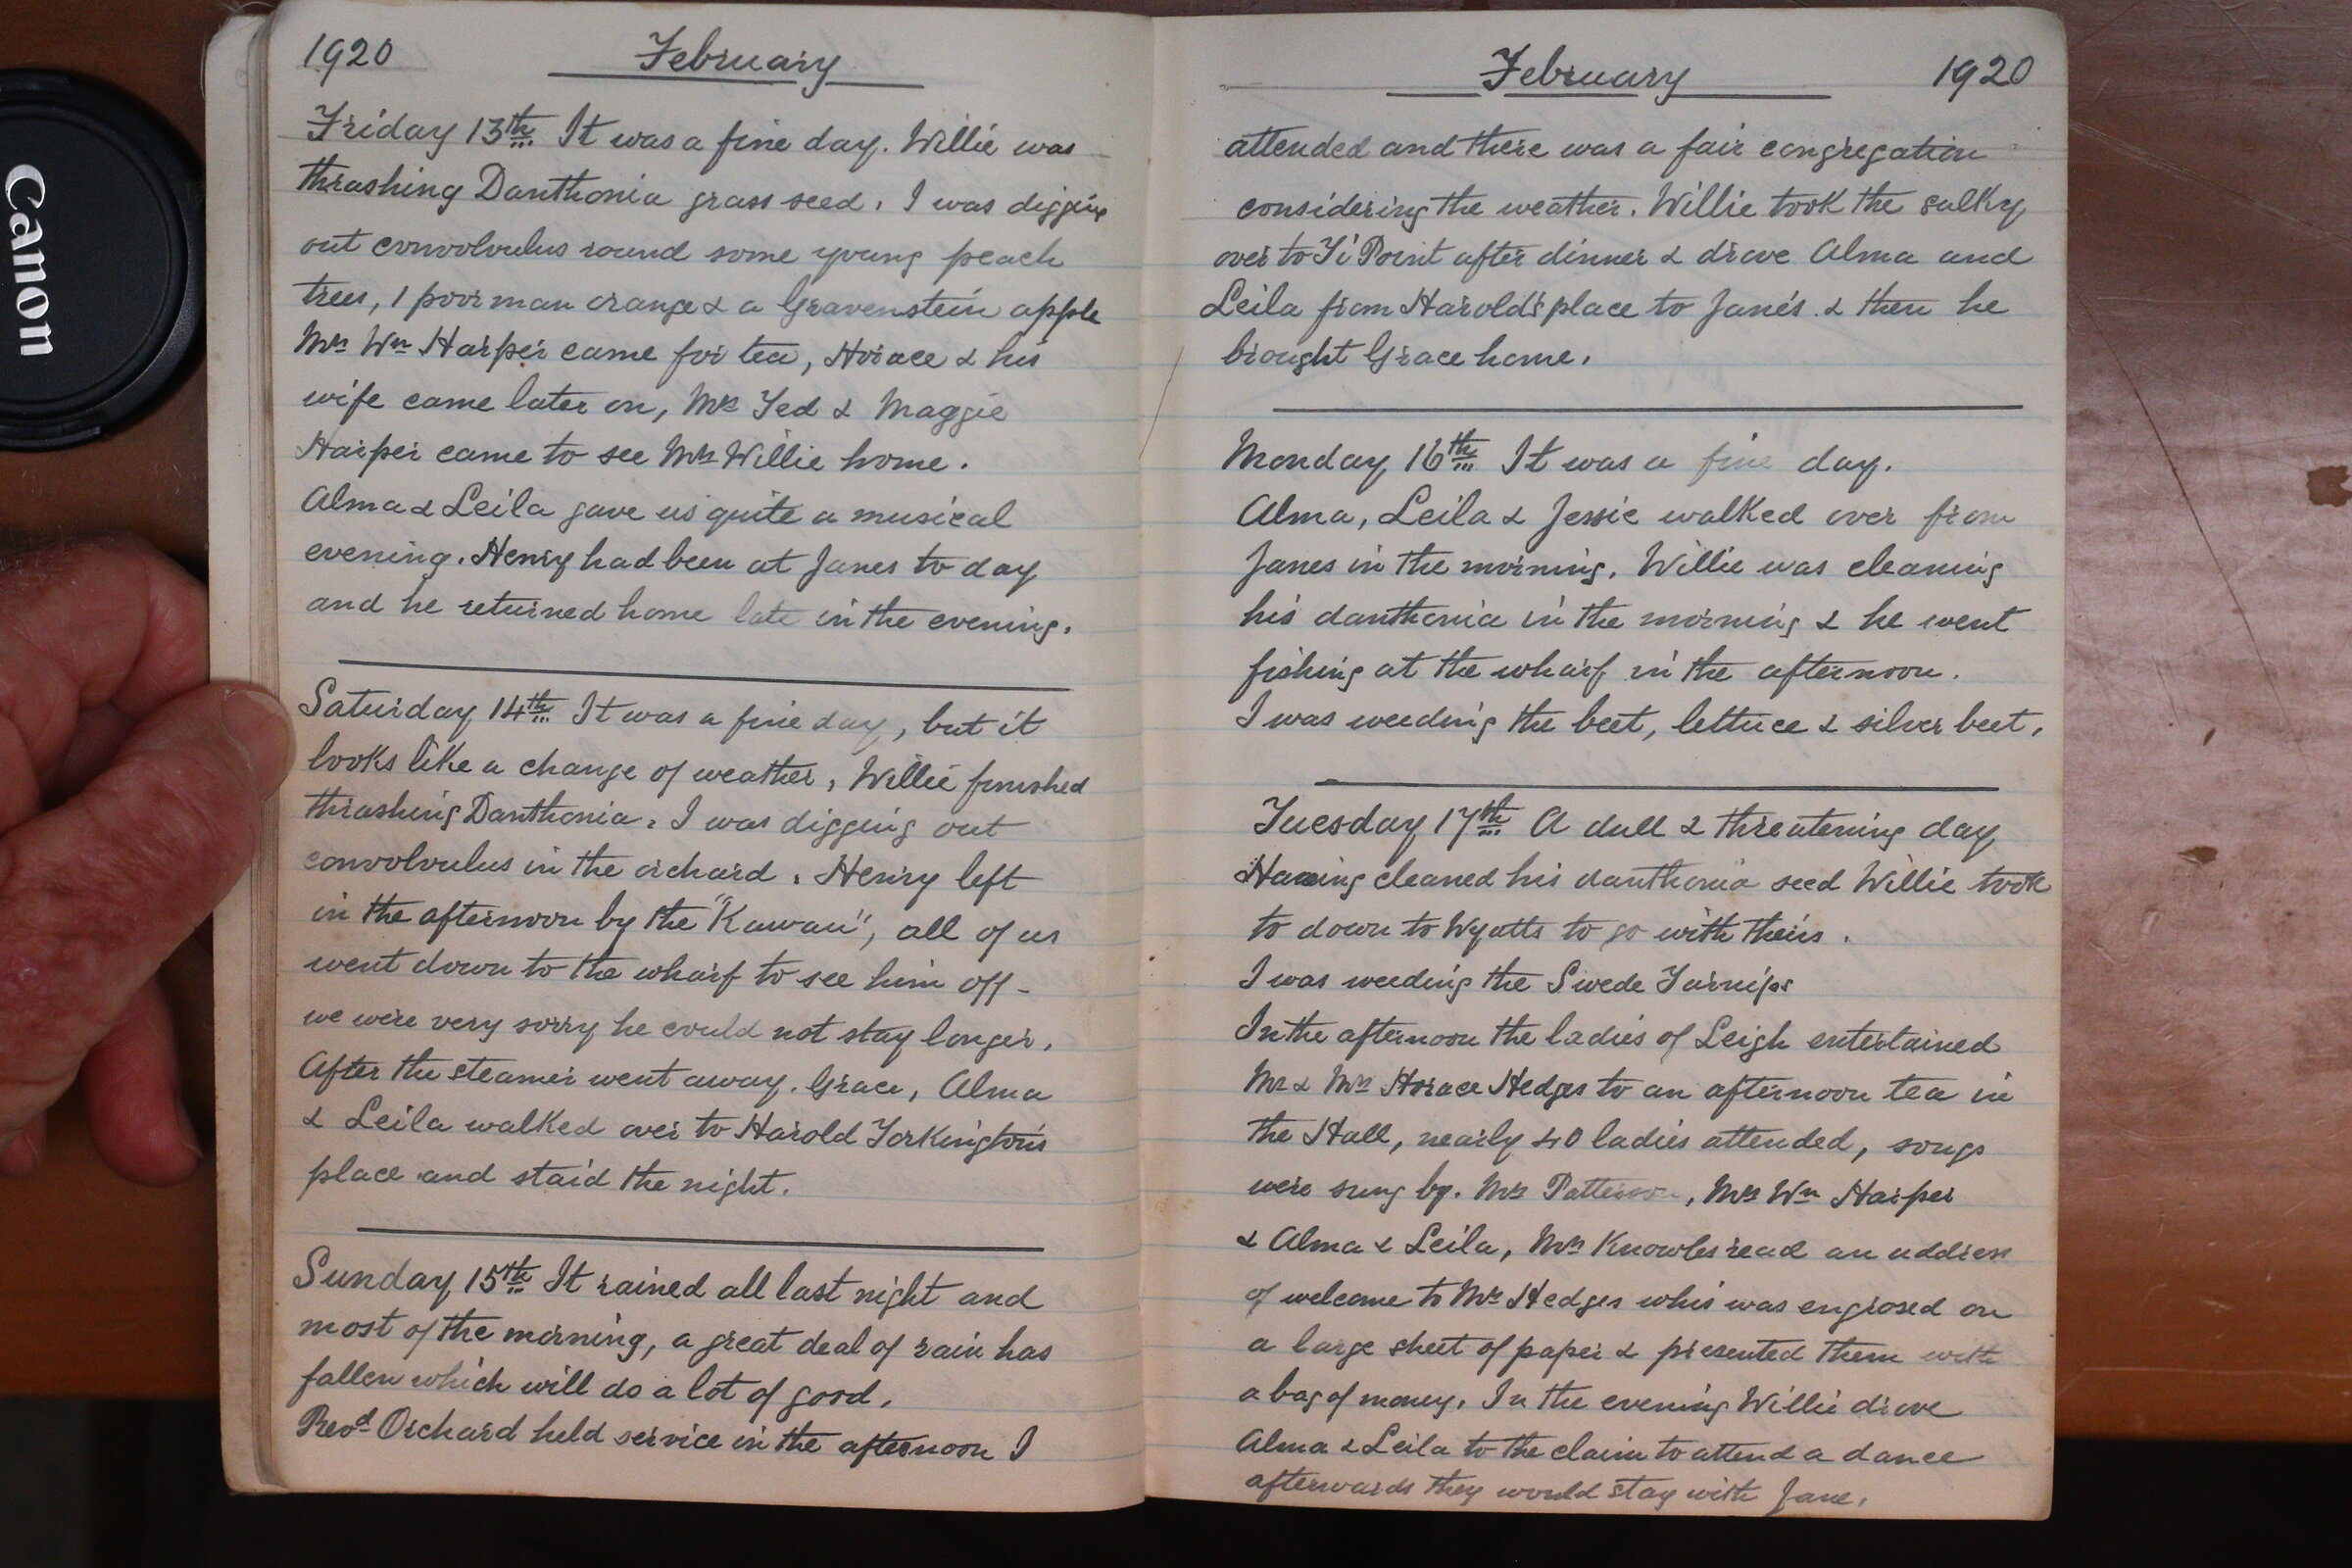 Canon
1920 February
Friday 13th It was a fine day. Willie was
thrashing Danthonia grass seed. I was digging
out convolvulus round some young peach
trees, 1 poorman orange & a Gravenstein apple
Mrs Wm Harper came for tea, Horace & his
wife came later on, Mrs Ted & Maggie
Harper came to see Mrs Willie home.
Alma & Leila gave us quite a musical
evening. Henry had been at Janes to day
and he returned home late in the evening.
Saturday 14th It was a fine day, but it
looks like a change of weather, Willie finished
thrashing Danthonia. I was digging out
convolvulus in the orchard. Henry left
in the afternoon by the "Kawau", all of us
went down to the wharf to see him off -
we were very sorry he could not stay longer.
After the steamer went away. Grace, Alma
& Leila walked over to Harold Torkington's
place and staid the night.
Sunday 15th It rained all last night and
most of the morning, a great deal of rain has
fallen which will do a lot of good.
Revd Orchard held service in the afternoon I
February 1920
attended and there was a fair congregation
considering the weather. Willie took the sulky
over to Ti Point after dinner & drove Alma and
Leila from Harold's place to Jane's & then he
brought Grace home.
Monday 16th It was a fine day.
Alma, Leila & Jessie walked over from
Janes in the morning. Willie was cleaning
his danthonia in the morning & he went
fishing at the wharf in the afternoon.
I was weeding the beet, lettuce & silver beet.
Tuesday 17th A dull & threatening day
Having cleaned his danthonia seed Willie took
to down to Wyatts to go with theirs.
I was weeding the Swede Turnips
In the afternoon the ladies of Leigh entertained
Mr & Mrs Horace Hedges to an afternoon tea in
the Hall, nearly 40 ladies attended, songs
were sung by. Mrs Patterson, Mrs Wm Harper
& Alma & Leila, Mrs Knowles read an address
of welcome to Mrs Hedges whis was engrosed on
a large sheet of paper & presented them with
a bag of money. In the evening Willie drove
Alma & Leila to the claim to attend a dance
afterwards they would stay with Jane.